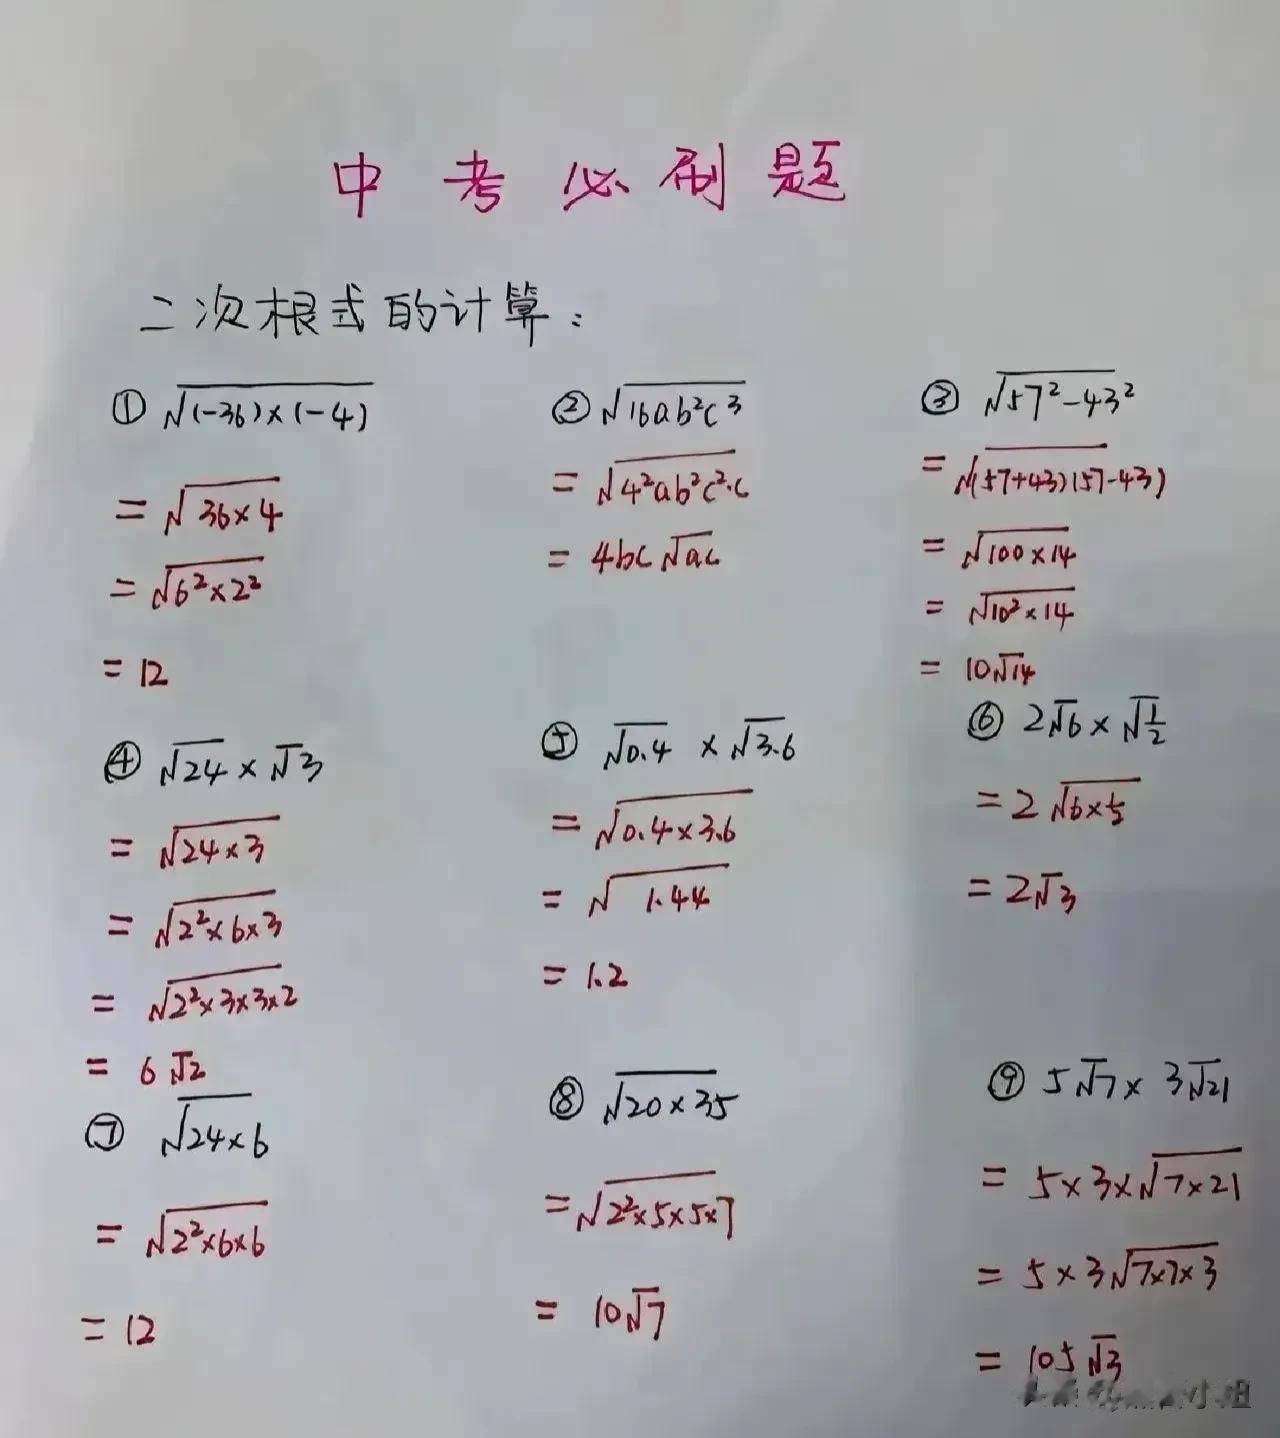 中考必刷题
二次根式的计算:
① √(-36)×(-4)
= √36×4
= √6²×2²
= 12
② √16ab²c³
= √4²ab²c²·c
= 4bc√ac
③ √57²-43²
= √(57+43)(57-43)
= √100×14
= √10²×14
= 10√14
④ √24 × √3
= √24×3
= √2²×6×3
= √2²×3×3×2
= 6√2
⑤ √0.4 × √3.6
= √0.4×3.6
= √1.44
= 1.2
⑥ 2√6 × √1/2
= 2√6×1/2
= 2√3
⑦ √24×6
= √2²×6×6
= 12
⑧ √20×35
= √2²×5×5×7
= 10√7
⑨ 5√7 × 3√21
= 5×3×√7×21
= 5×3√7×7×3
= 105√3
小姐